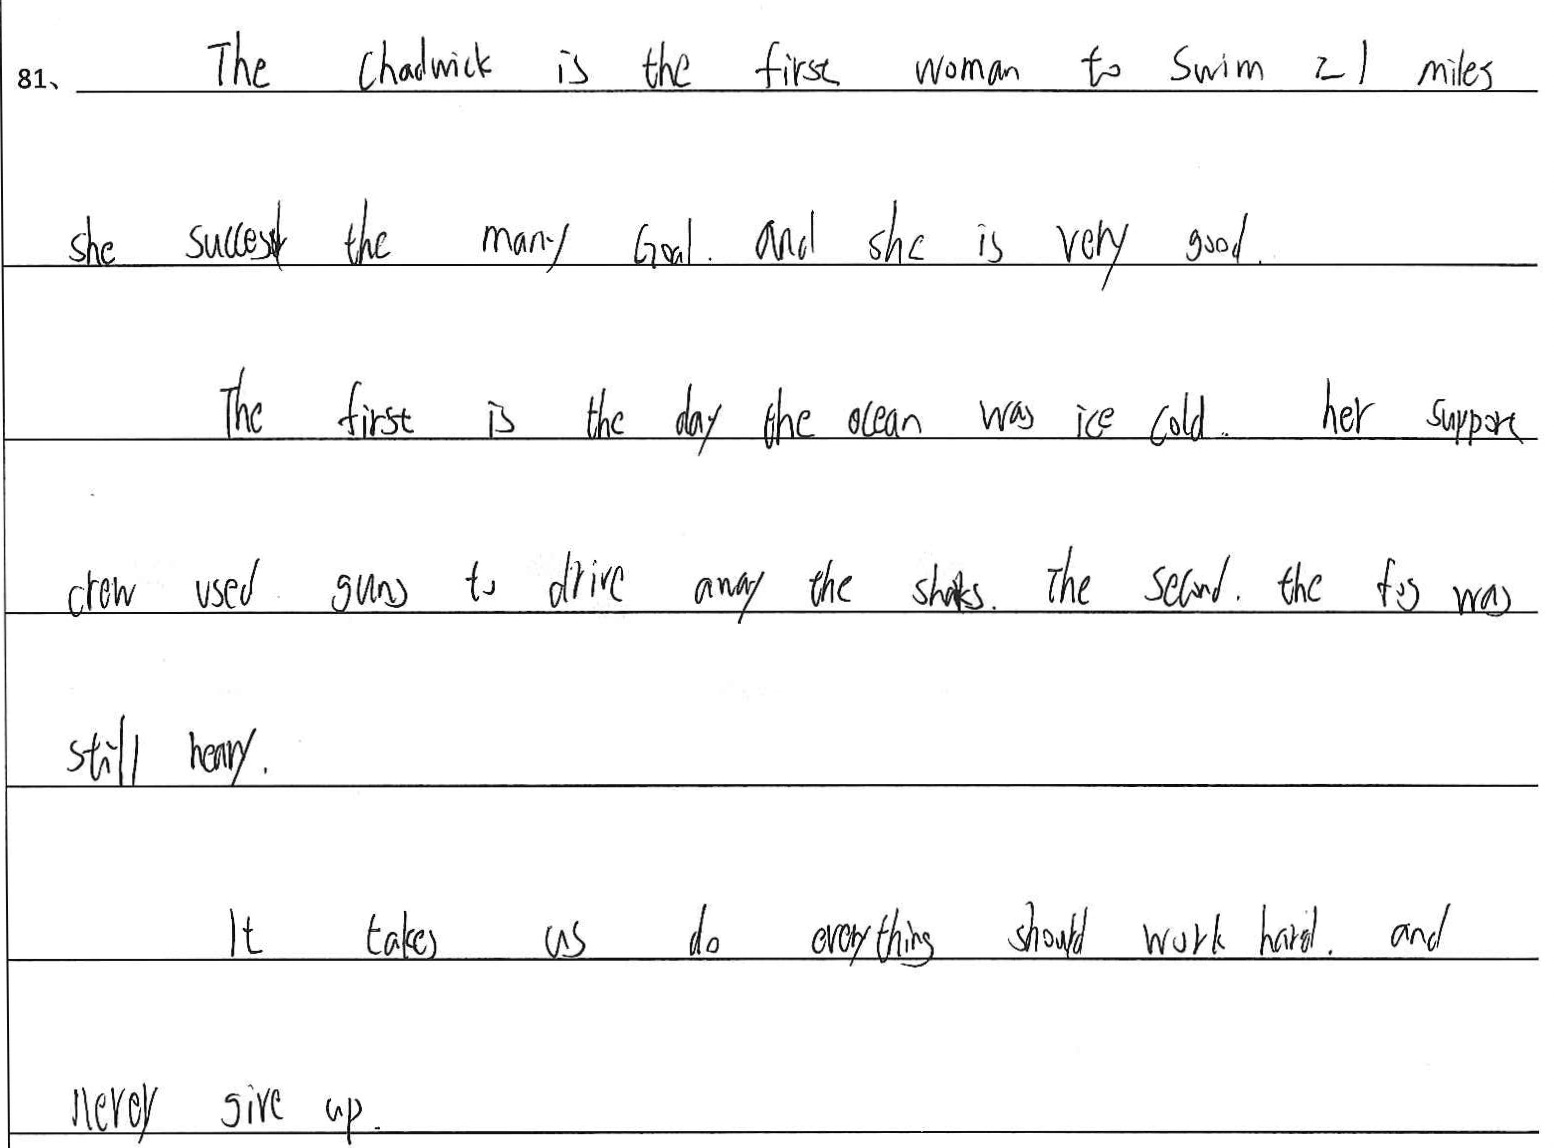 81、 The Chadwick is the first woman to swim 21 miles
she success the many Goal. and she is very good.
The first is the day the ocean was ice cold. her support
crew used guns to drive away the sharks. The second. the fog was
still heavy.
It takes us do everything should work hard. and
never give up.